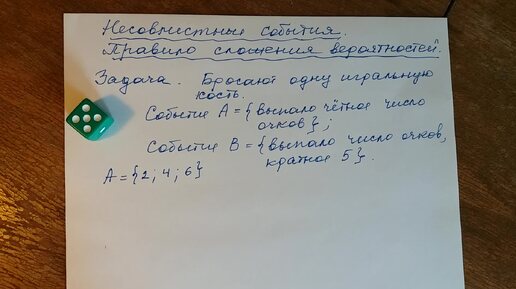 Несовместные события.
Правило сложения вероятностей.
Задача. Бросают одну игральную
кость.
Событие A = {выпало чётное число
очков};
Событие B = {выпало число очков,
кратное 5}.
A = {2; 4; 6}